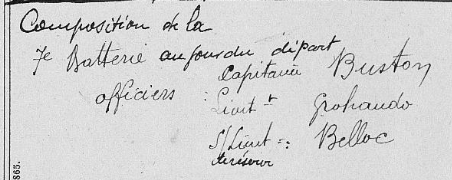 Composition de la
7e Batterie au jour du départ
officiers : Capitaine Buston
Lieut t Grohando
S/Lieut =: Belloc
de réserve
865.